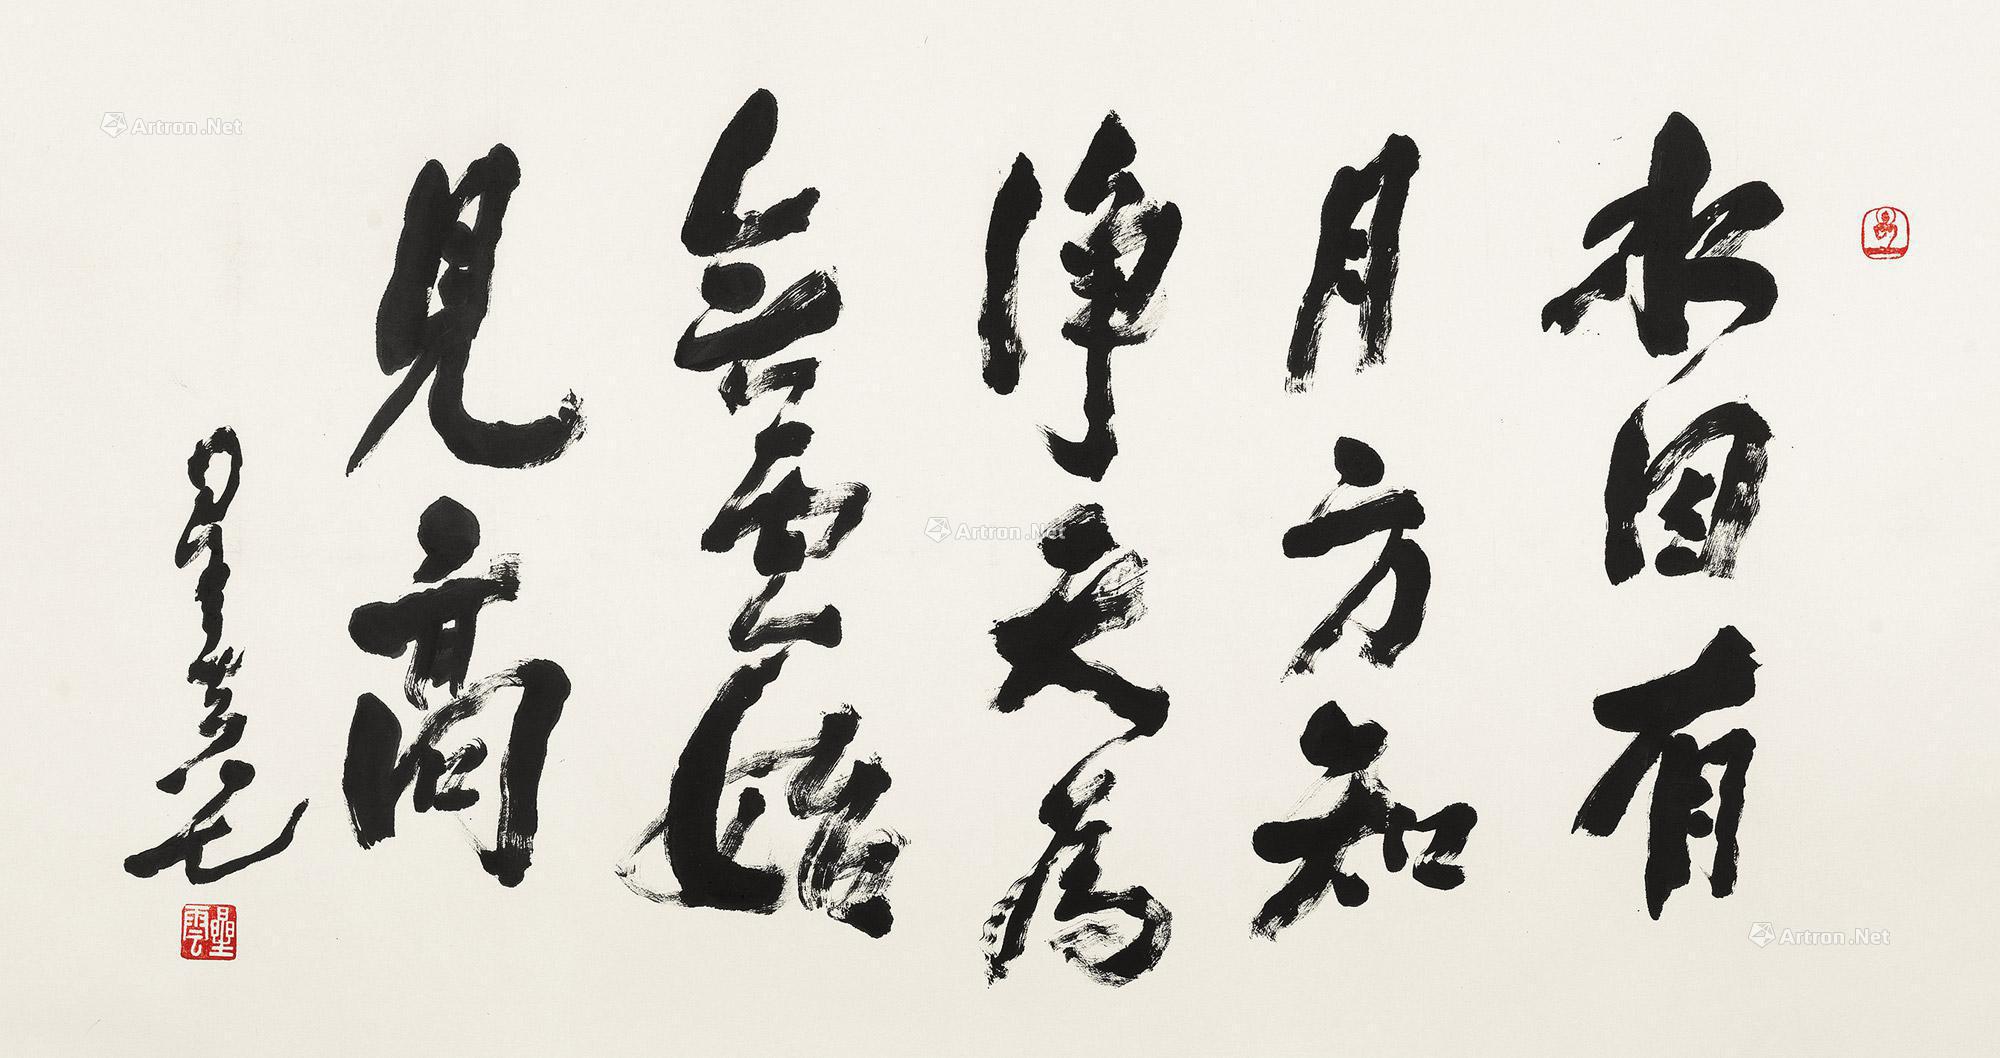 水因有
月方知
淨天為
無雲始
見高
星雲八七
星雲
Artron.Net
Artron.Net
Artron.Net